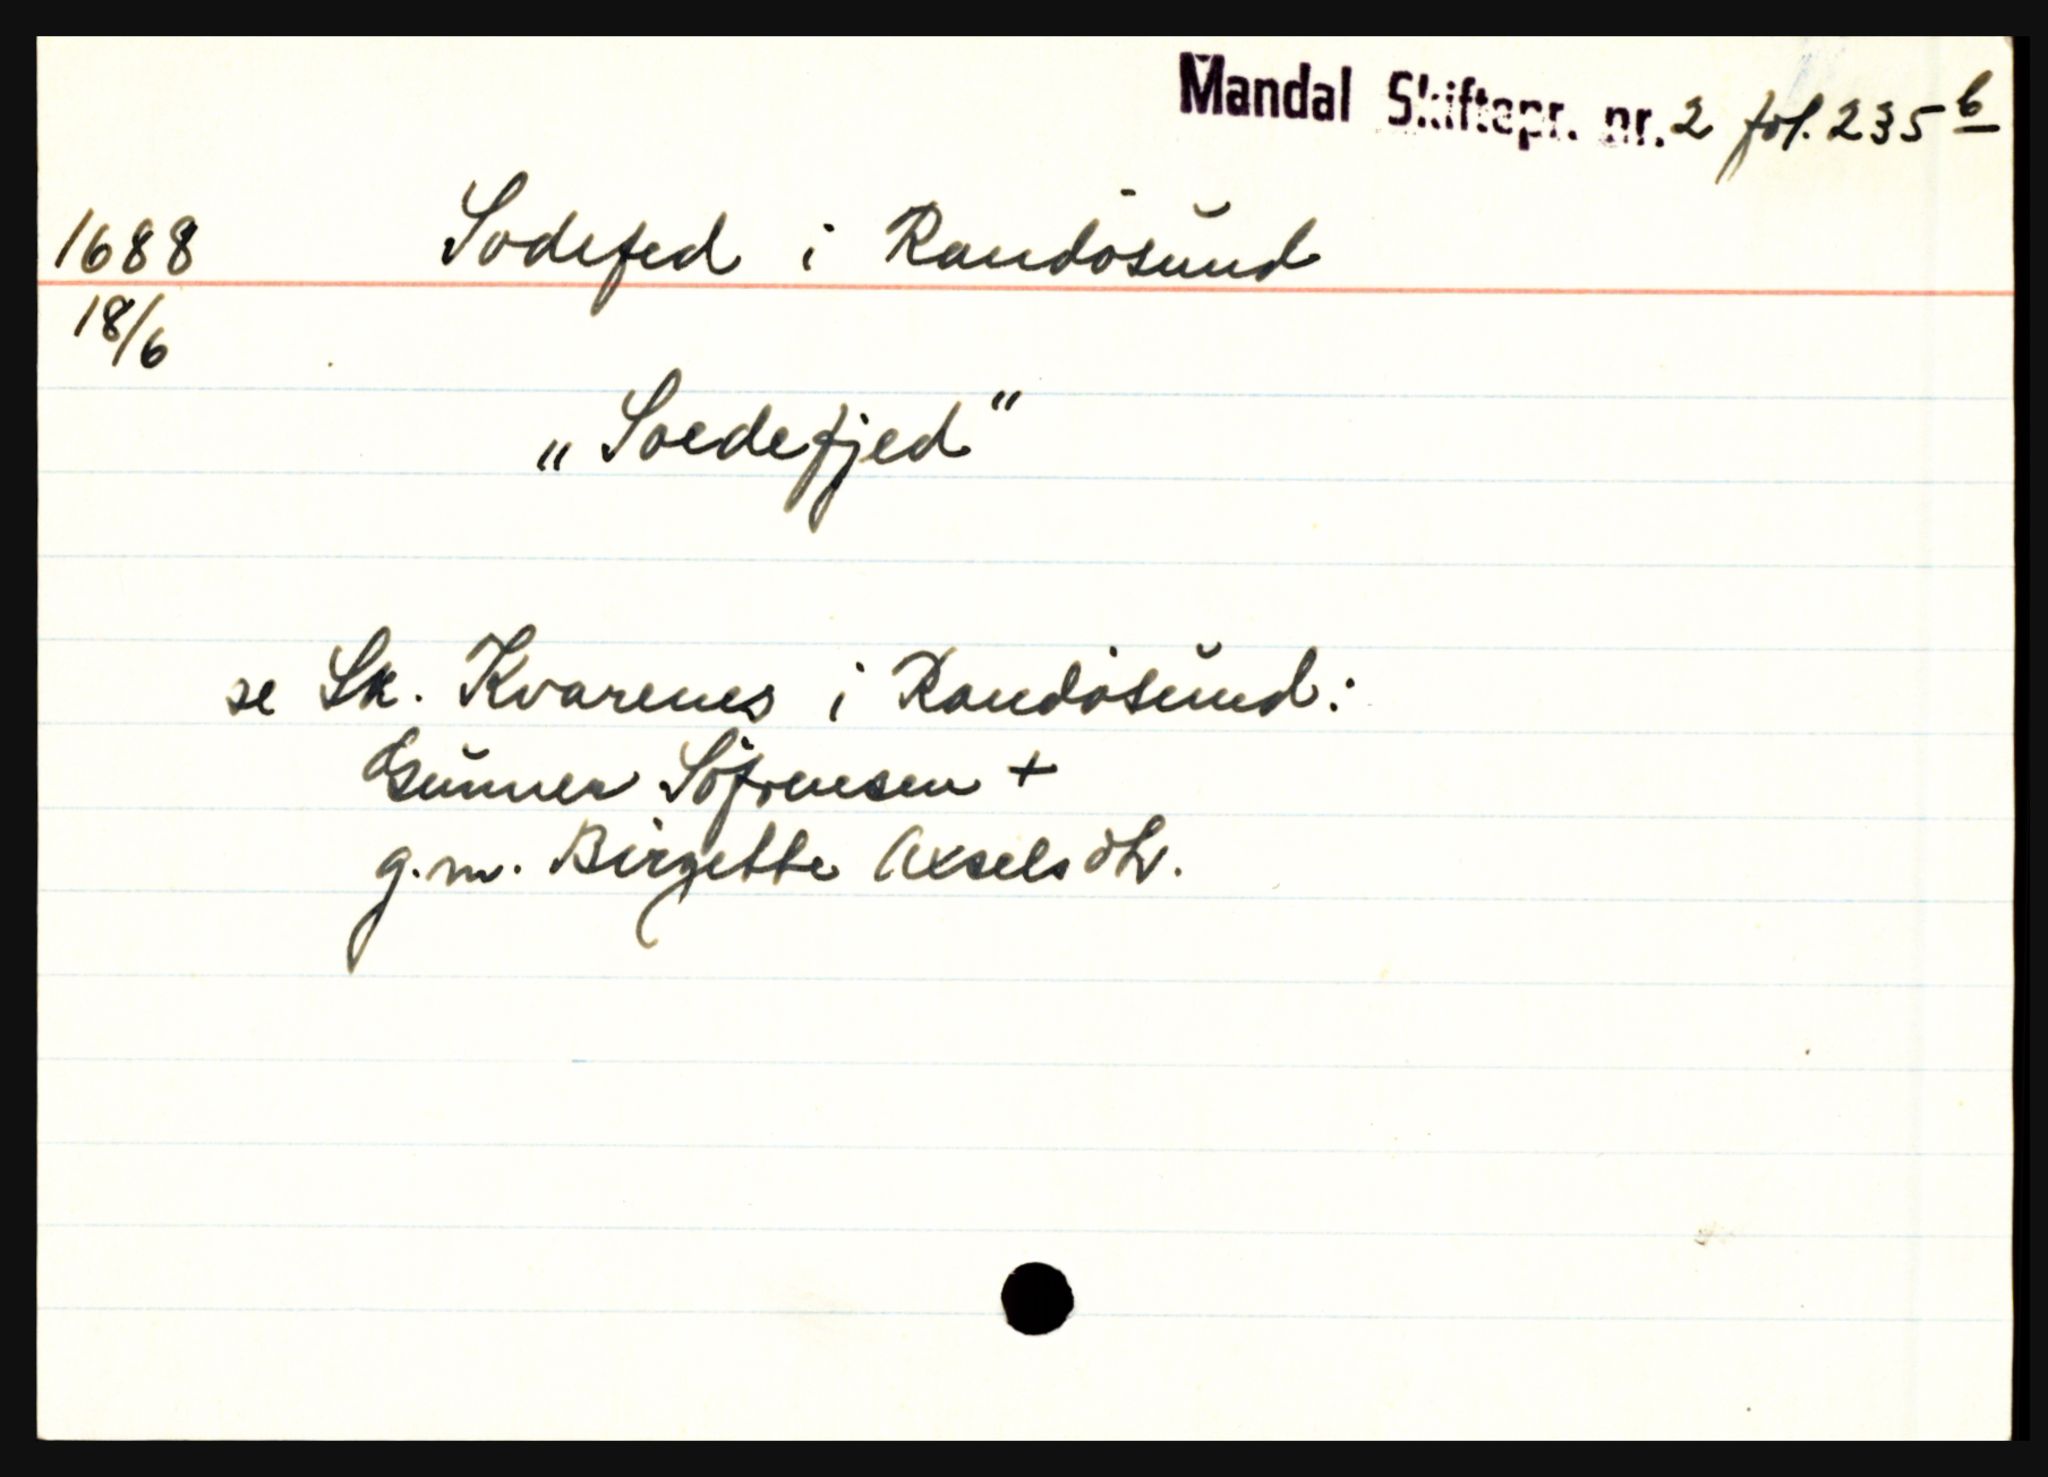 Mandal Skiftepr. nr. 2 fol. 235 b
1688 Sodefed i Randösund
18/6
„Soedefjed“
se Sk. Kvarenes i Randösund:
Gunner Söfrensen +
g.m. Birgette Axselsdtr.